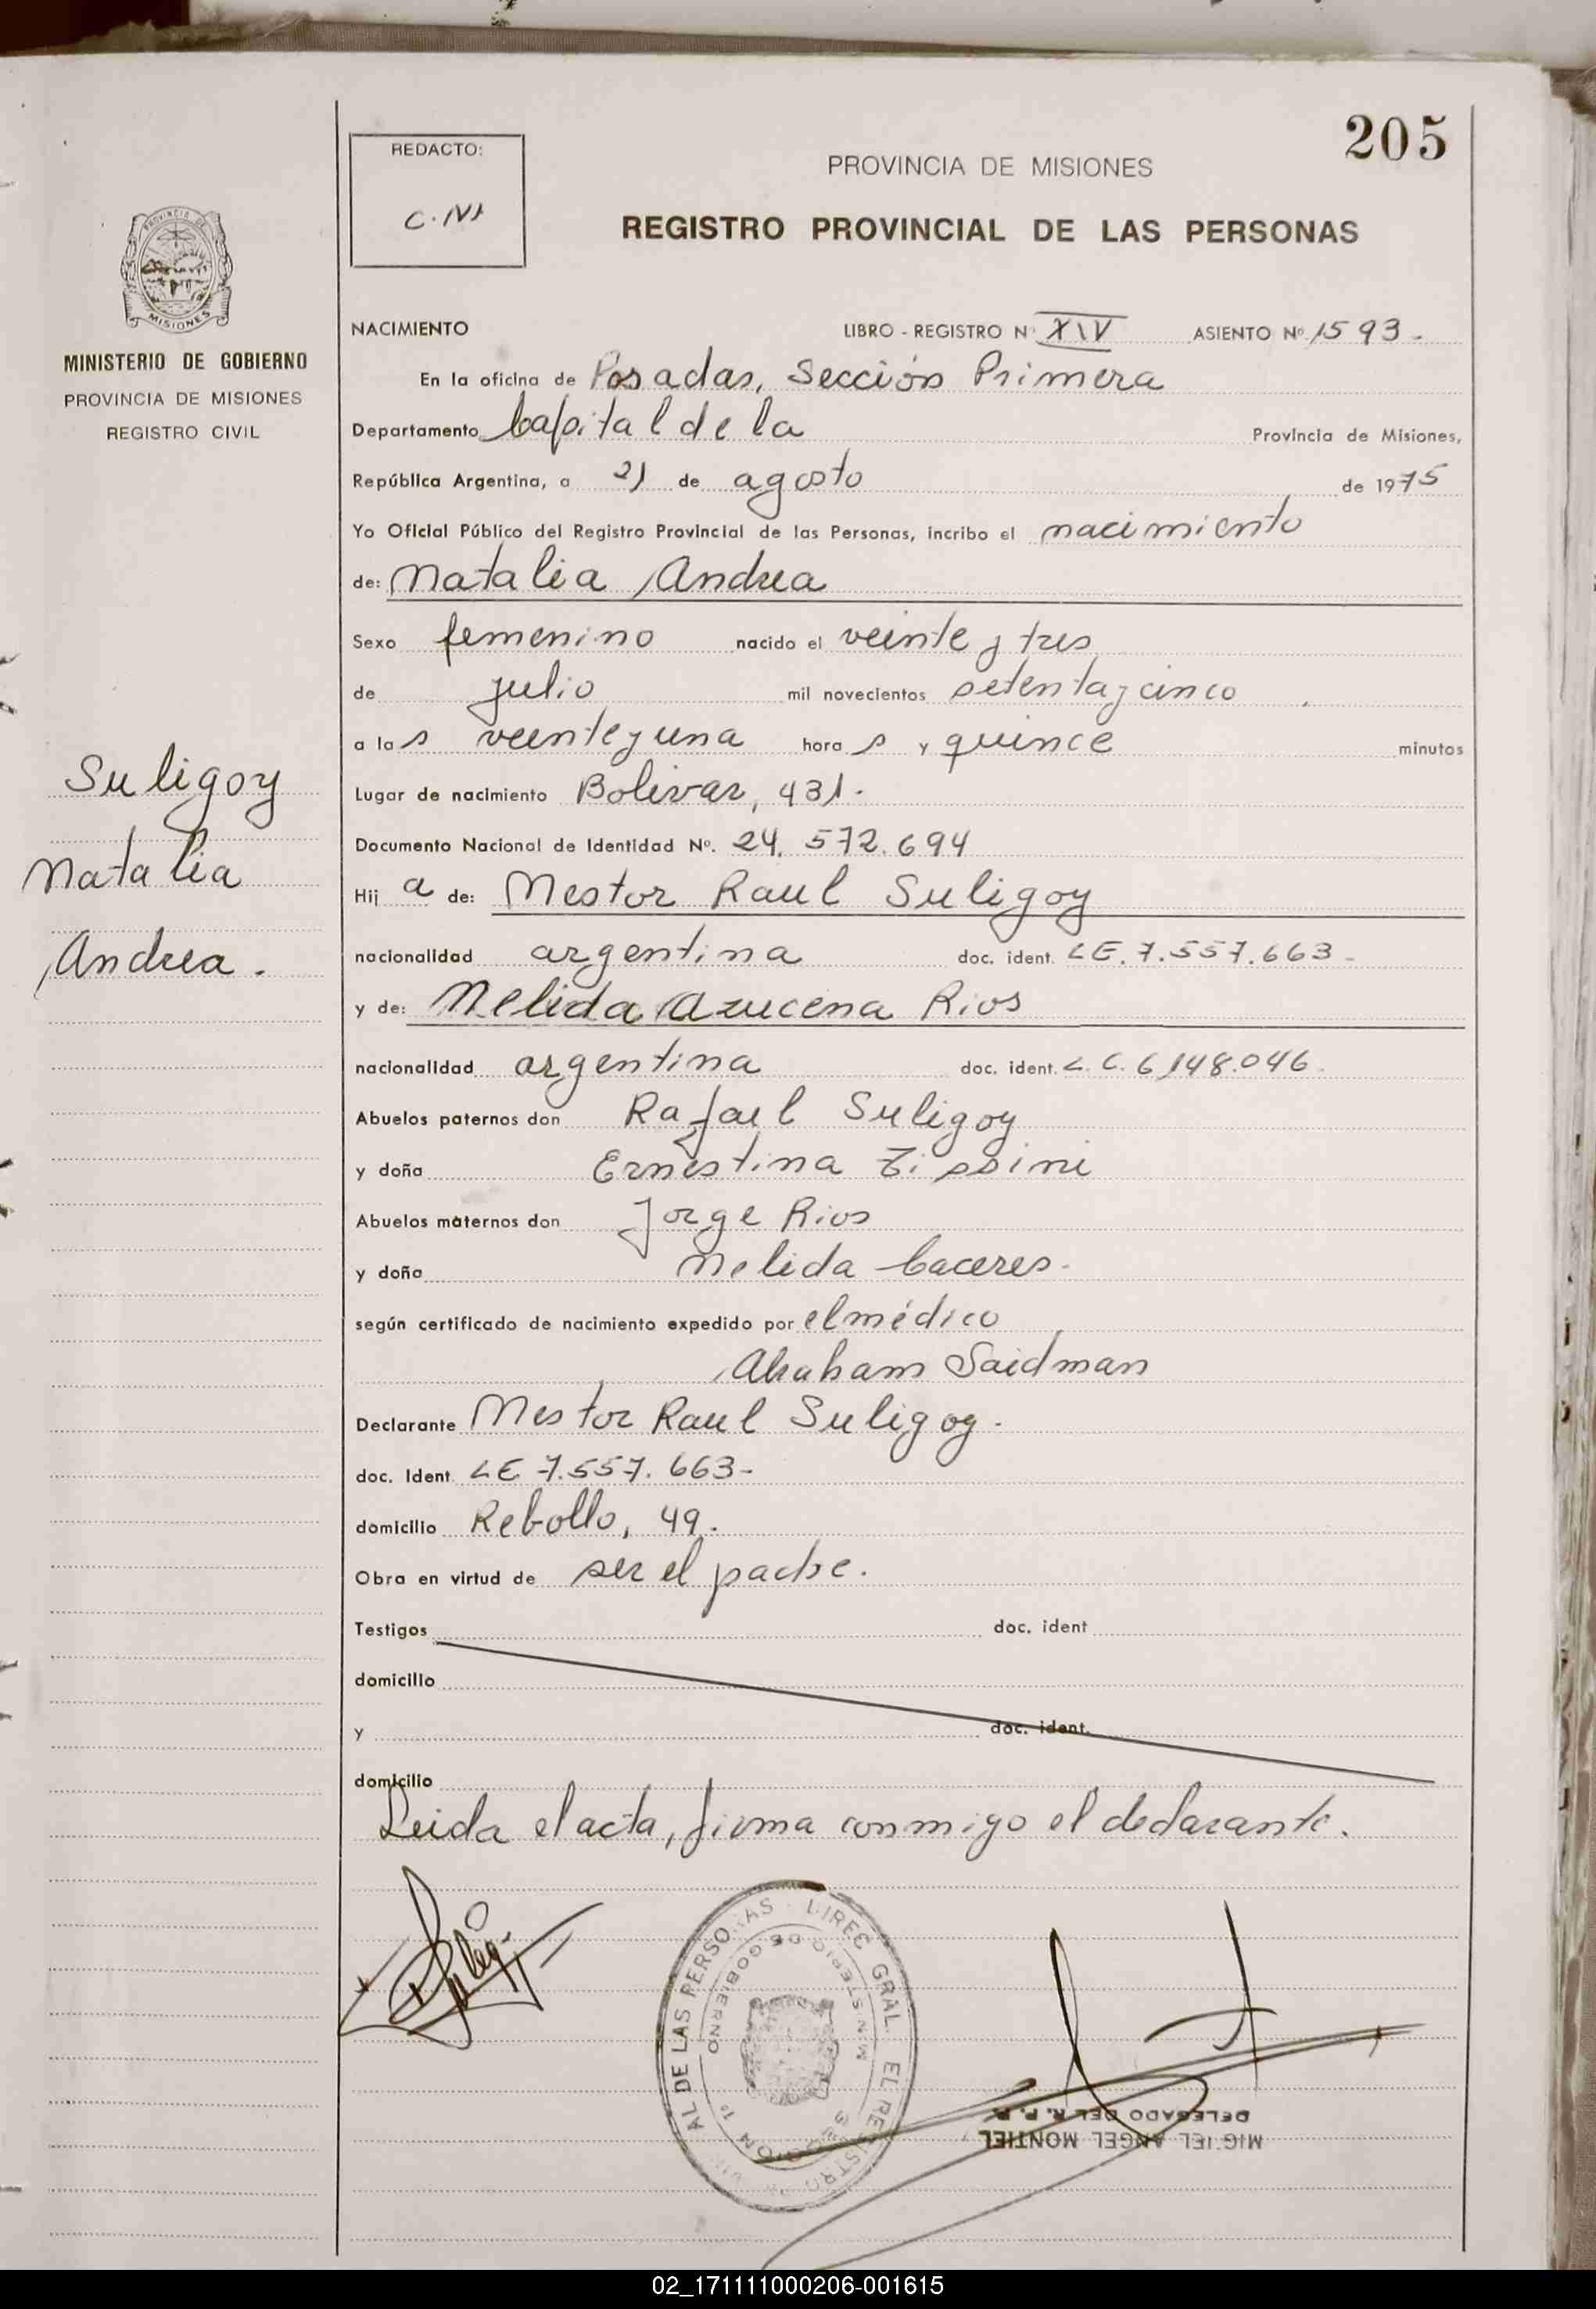 205
REDACTO:
PROVINCIA DE MISIONES
REGISTRO PROVINCIAL DE LAS PERSONAS
PROVINCIA DE
MISIONES
MINISTERIO DE GOBIERNO
PROVINCIA DE MISIONES
REGISTRO CIVIL
NACIMIENTO LIBRO - REGISTRO Nº XIV ASIENTO Nº 1593.
En la oficina de Posadas, Sección Primera
Departamento Capital de la Provincia de Misiones,
República Argentina, a 21 de agosto de 1975
Yo Oficial Público del Registro Provincial de las Personas, incribo el nacimiento
de: Natalia Andrea
Sexo femenino nacido el veinte y tres
de julio mil novecientos setenta y cinco
a las veinte y una horas y quince minutos
Lugar de nacimiento Bolivar, 431.
Documento Nacional de Identidad Nº. 24.572.694
Hija de: Nestor Raul Suligoy
nacionalidad argentina doc. ident. LE. 7.557.663-
y de: Nelida Azucena Rios
nacionalidad argentina doc. ident. L.C. 6.148.046
Abuelos paternos don Rafael Suligoy
y doña Ernestina
Abuelos maternos don Jorge Rios
y doña Nelida Caceres.
según certificado de nacimiento expedido por el médico
Abraham Saidman
Declarante Nestor Raul Suligoy.
doc. Ident LE 7.557.663-
domicilio Rebollo, 49.
Obra en virtud de ser el padre.
Testigos doc. ident
domicilio
y doc. ident.
domicilio
Leida el acta, firma conmigo el declarante.
Suligoy
Natalia
Andrea.
AL DE LAS PERSONAS DIREC. GRAL. EL REGISTRO
MINISTERIO DE GOBIERNO
DELEGADO DEL R. P. P.
MIGUEL ANGEL MONTIEL
02_171111000206-001615